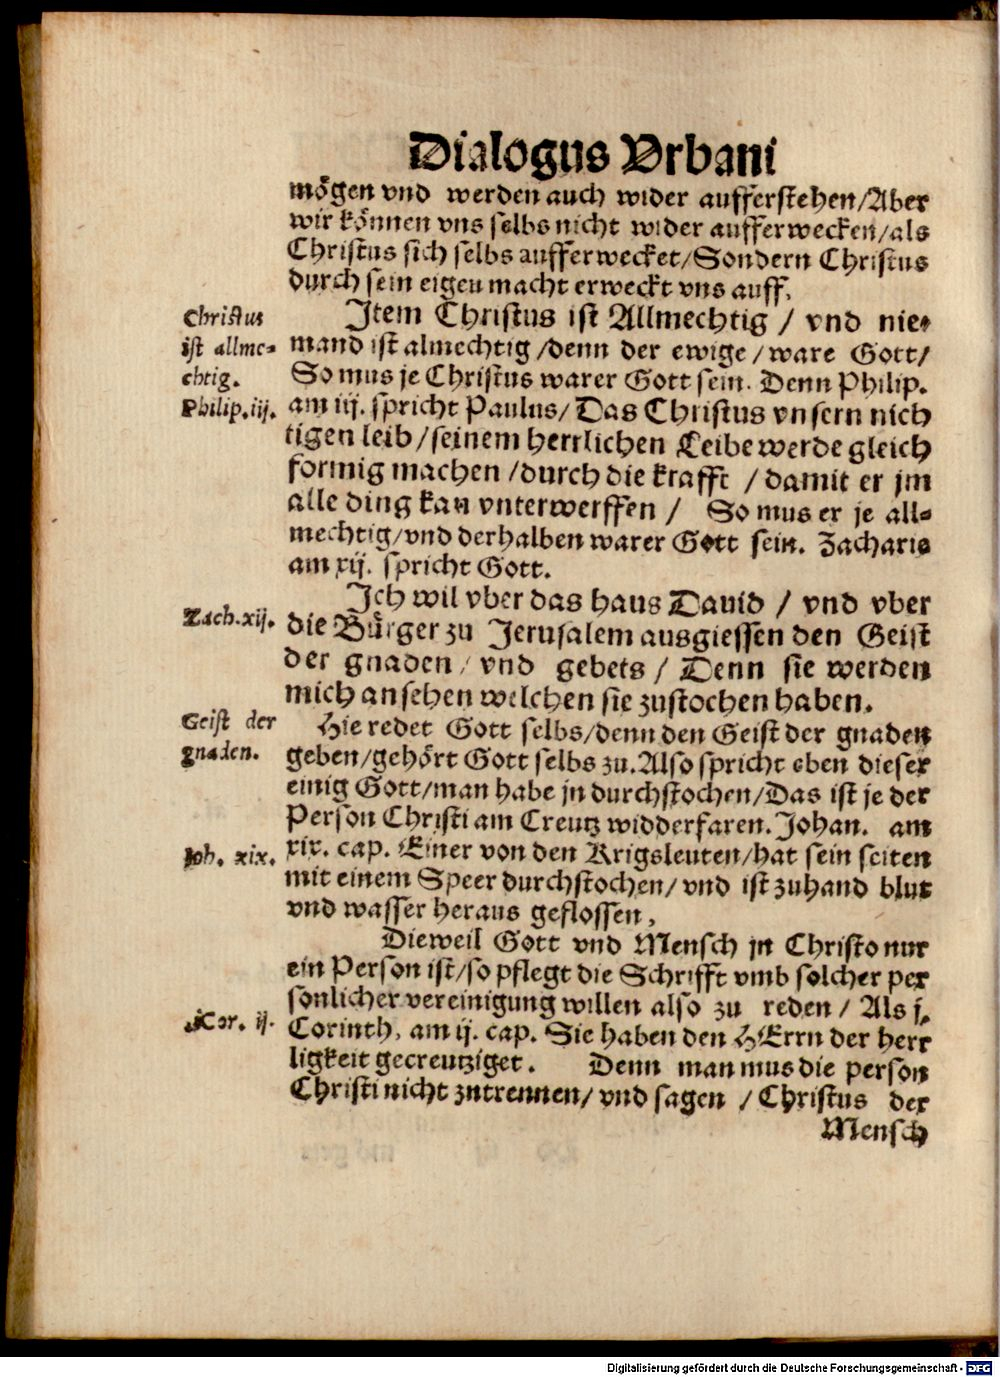 Dialogus Vrbani
mögen vnd werden auch wider aufferstehen/Aber
wir können vns selbs nicht wider aufferwecken/als
Christus sich selbs aufferwecket/Sondern Christus
durch sein eigen macht erweckt vns auff.
Christus
ist allme-
chtig.
Philip.iij.
Item Christus ist Allmechtig / vnd nie-
mand ist almechtig/denn der ewige/ware Gott/
So mus je Christus warer Gott sein. Denn Philip.
am iij. spricht Paulus/Das Christus vnsern nich
tigen leib/seinem herrlichen Leibe werde gleich
formig machen/durch die krafft / damit er jm
alle ding kan vnterwerffen / So mus er je all-
mechtig/vnd derhalben warer Gott sein. Zacharie
am xij. spricht Gott.
Zach.xij.
Ich wil vber das haus Dauid / vnd vber
die Bürger zu Jerusalem ausgiessen den Geist
der gnaden/ vnd gebets/ Denn sie werden
mich ansehen welchen sie zustochen haben.
Geist der
gnaden.
Hie redet Gott selbs/denn den Geist der gnaden
geben/gehört Gott selbs zu. Also spricht eben dieser
einig Gott/man habe jn durchstochen/Das ist je der
Person Christi am Creutz widderfaren. Johan. am
Joh. xix.
xix. cap. Einer von den Krigsleuten/hat sein seiten
mit einem Speer durchstochen/ vnd ist zuhand blut
vnd wasser heraus geflossen,
Dieweil Gott vnd Mensch jn Christo nur
ein Person ist/so pflegt die Schrifft vmb solcher per
sonlicher vereinigung willen also zu reden / Als j.
j.Cor. ij.
Corinth. am ij. cap. Sie haben den HErrn der herr
ligkeit gecreutziget. Denn man mus die person
Christi nicht zutrennen/ vnd sagen / Christus der
Mensch
Digitalisierung gefördert durch die Deutsche Forschungsgemeinschaft - DFG